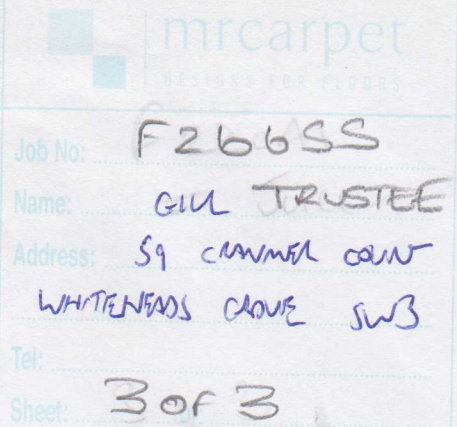 mrcarpet
DESIGNS FOR FLOORS
Job No: F266SS
Name: GILL TRUSTEE
Address: 59 CRANMER COURT
WHITEHEADS GROVE SW3
Tel:
Sheet: 3 OF 3